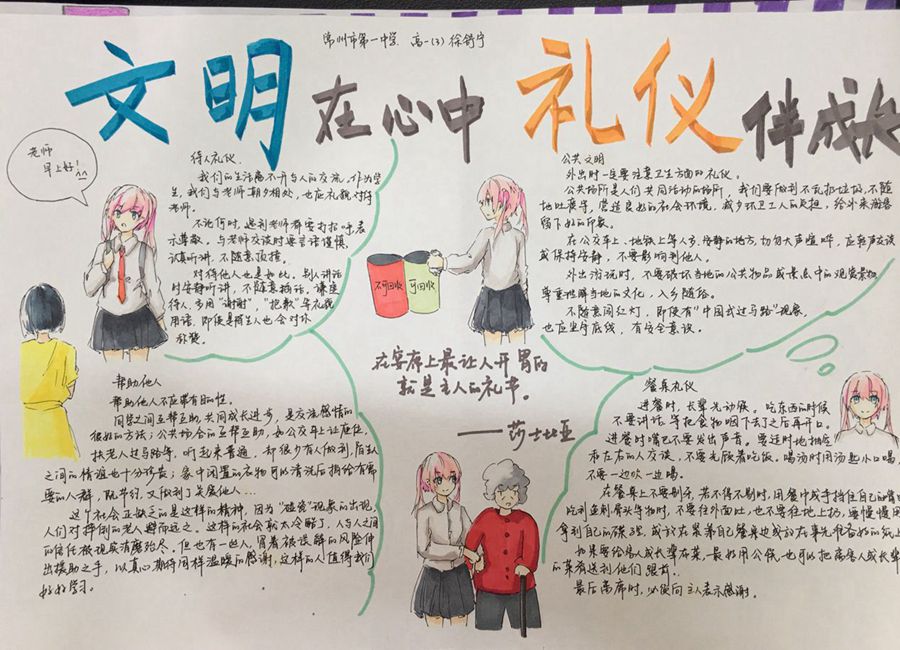 常州市第一中学 高一(3) 徐舒宁
文明在心中 礼仪伴成长
老师
早上好!^^
待人礼仪
我们的生活离不开与人的交流,作为学
生,我们与老师朝夕相处,也应礼貌对待
老师。
不论何时,遇到老师都要打招呼,表
示尊敬。与老师交谈时要言语谨慎,
认真听讲,不随意顶撞。
对待他人也是如此。别人讲话
时安静听讲,不随意插话。谦逊
待人,多用“谢谢”,“抱歉”等礼貌
用语,即使是陌生人也会对你
称赞。
公共文明
外出时一定要注意卫生方面的礼仪。
公共场所是人们共同活动的场所,我们要做到不乱扔垃圾,不随
地吐痰等,营造良好的社会环境,减少环卫工人的负担,给外来游客
留下好的印象。
在公交车上、地铁上等人多、安静的地方,切勿大声喧哗,应轻声交谈
或保持安静,不要影响到他人。
外出游玩时,不要破坏当地的公共物品或景点中的观赏景物,
尊重理解当地的文化,入乡随俗。
不随意闯红灯,即使有“中国式过马路”现象,
也应坚守底线,有安全意识。
不可回收
可回收
在宴席上最让人开胃的
就是主人的礼节。
——莎士比亚
帮助他人
帮助他人不应带有目的性。
同学之间互帮互助,共同成长进步,是交流感情的
很好的方法;公共场合的互帮互助,如公交车上让座位,
扶老人过马路等,听起来普通,却很少有人做到,陌生人
之间的情谊也十分珍贵;家中闲置的衣物可以清洗后捐给有需
要的人群,既节约,又做到了关爱他人…
这个社会正缺乏的是这样的精神,因为“碰瓷”现象的出现,
人们对摔倒的老人避而远之。这样的社会就太冷酷了,人与人之间
的信任被现实消磨殆尽。但也有一些人,冒着被误解的风险伸
出援助之手,以真心期待同样温暖的感谢,这样的人值得我们
好好学习。
餐桌礼仪
进餐时,长辈先动筷。吃东西的时候
不要讲话,等把食物咽下去之后再开口。
进餐时嘴巴不要发出声音。要适时地抽空
和左右的人交谈,不要光顾着吃饭。喝汤时用汤匙小口喝,
不要一边吹一边喝。
在餐桌上不要剔牙,若不得不剔时,用餐巾或手挡住自己的嘴巴
吃到鱼刺骨头等物时,不要往外面吐,也不要往地上扔,要慢慢用
拿到自己的碟子里,或放在紧靠自己餐桌边或放在事先准备好的纸上
如果要给客人或长辈布菜,最好用公筷,也可以把离客人或长辈
的菜肴送到他们跟前。
最后离席时,必须向主人表示感谢。